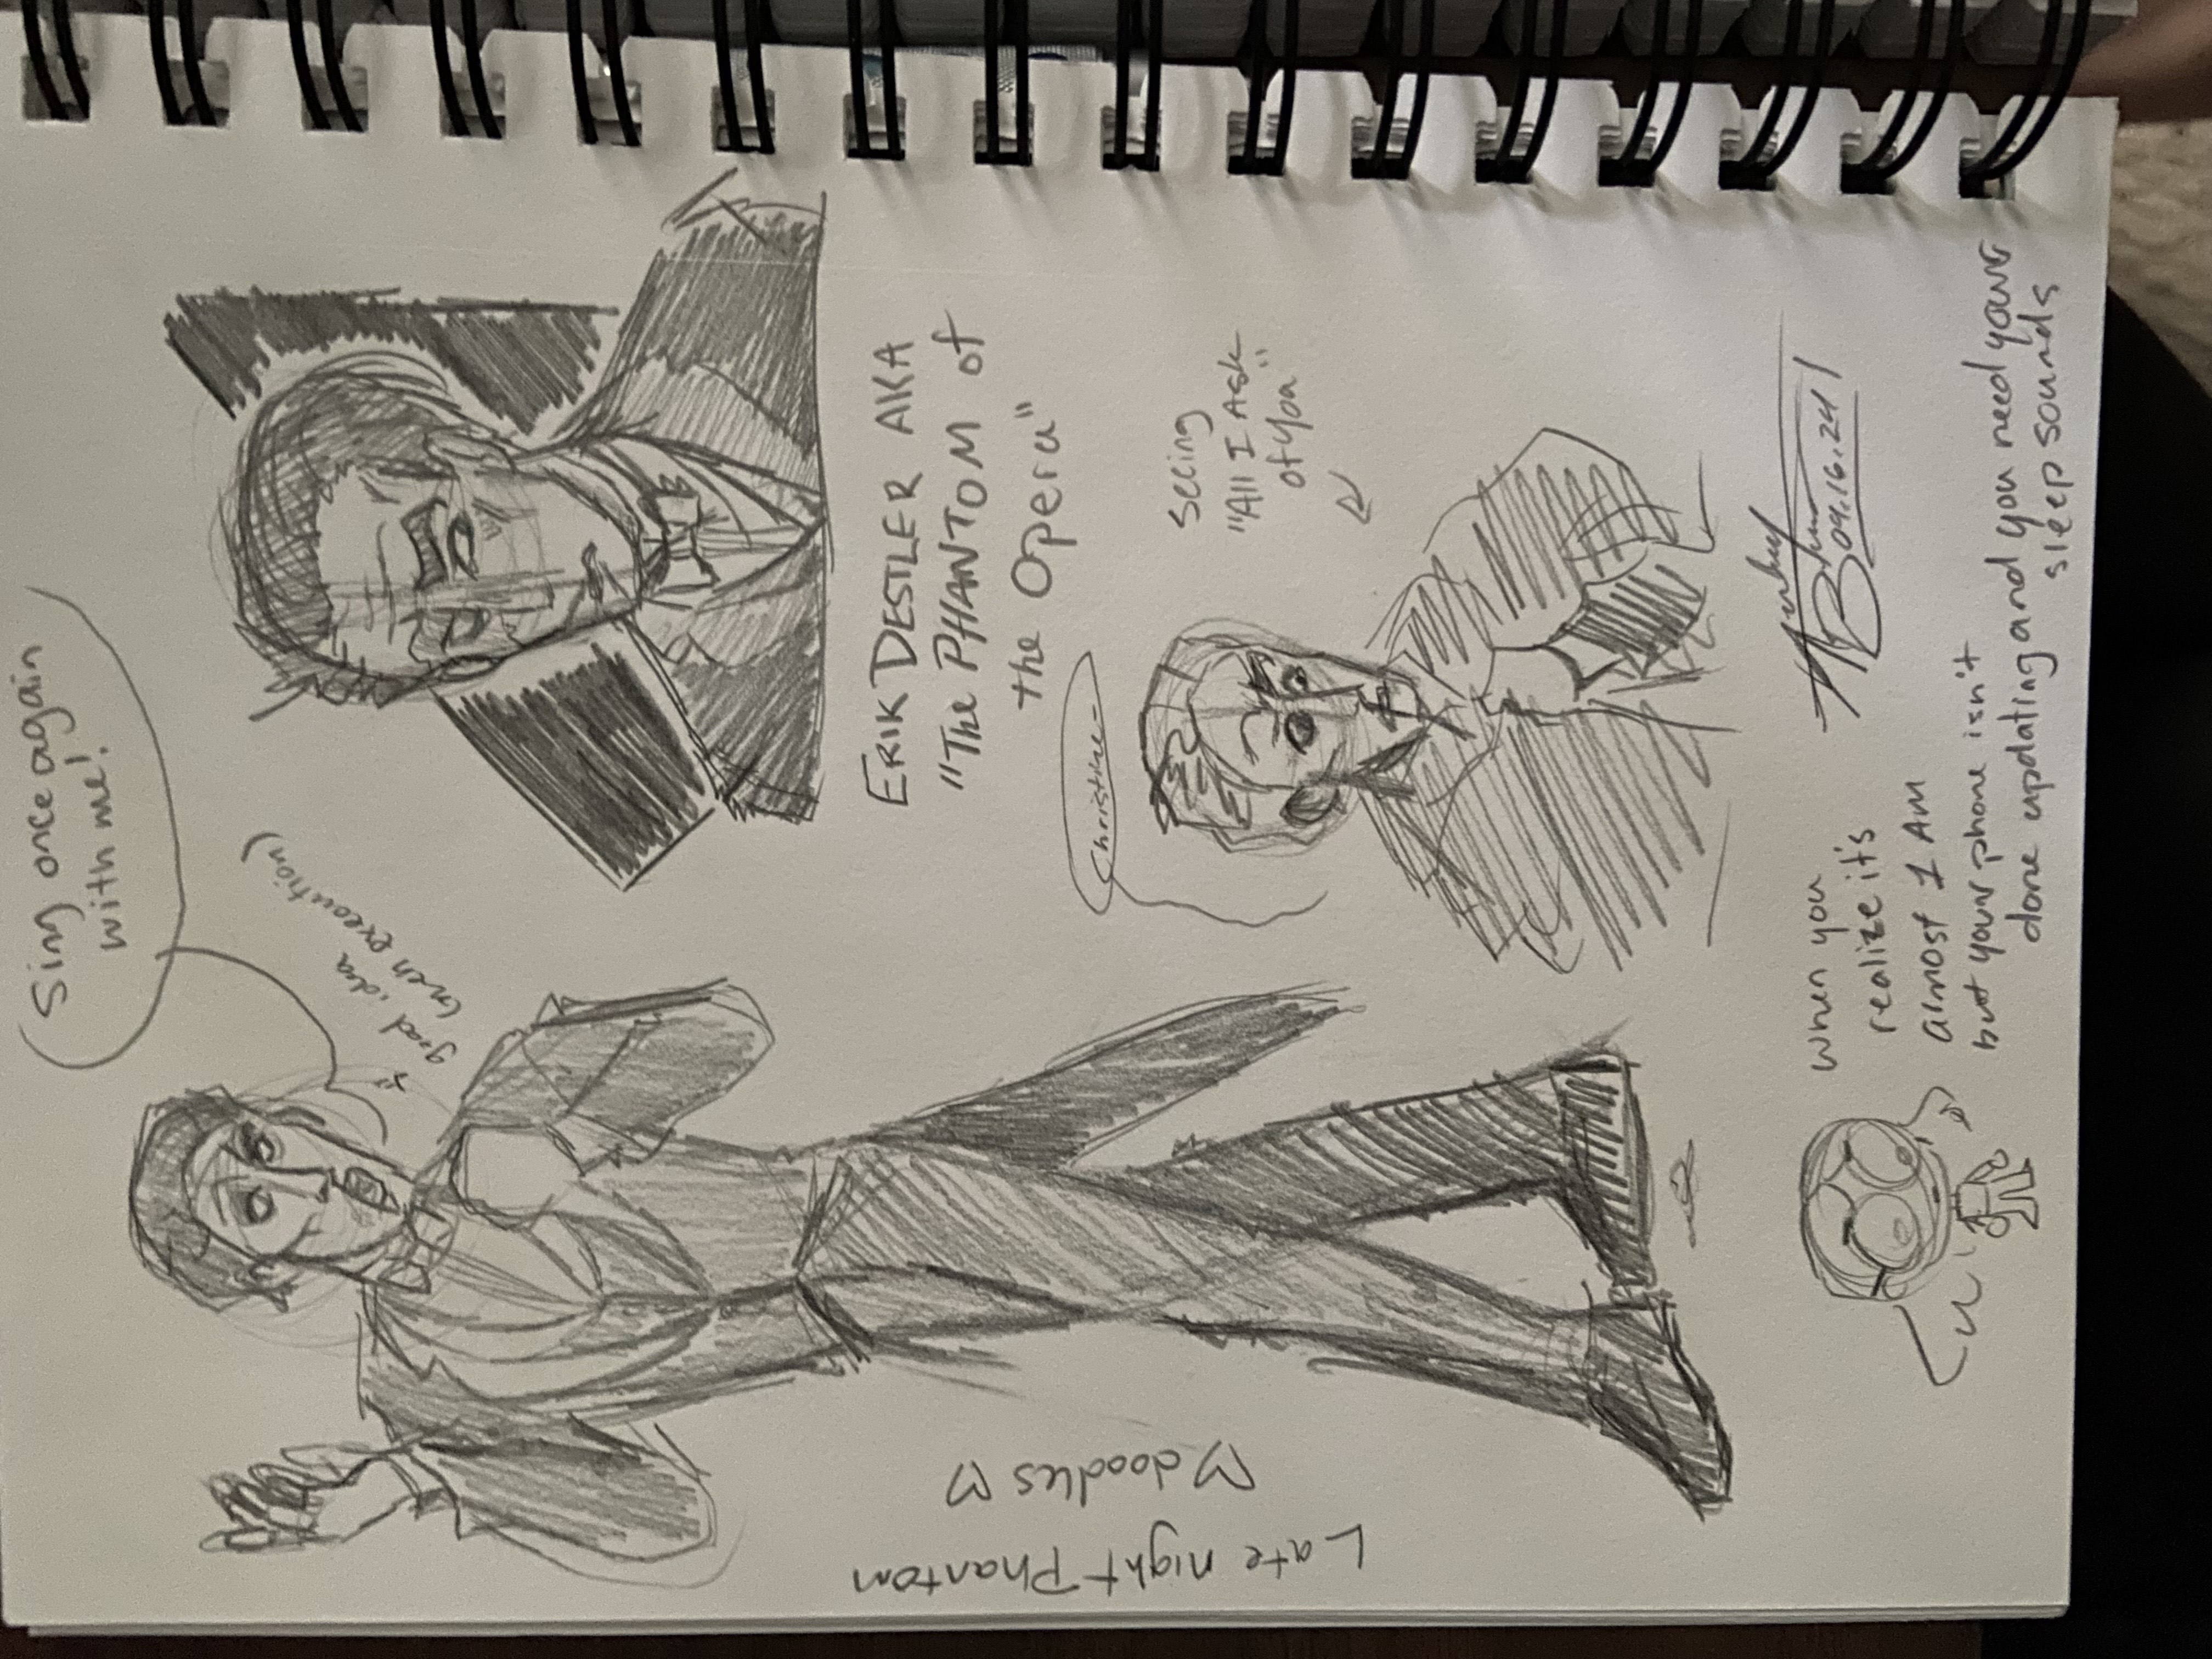 Sing once again
with me!
good idea
(even execution)
Late night Phantom
doodles
ERIK DESTLER AKA
"The PHANTOM of
the Opera"
Christine-
Seeing
"All I Ask
of You"
when you
realize it's
almost 1 AM
but your phone isn't
done updating and you need your
sleep sounds
09.16.24